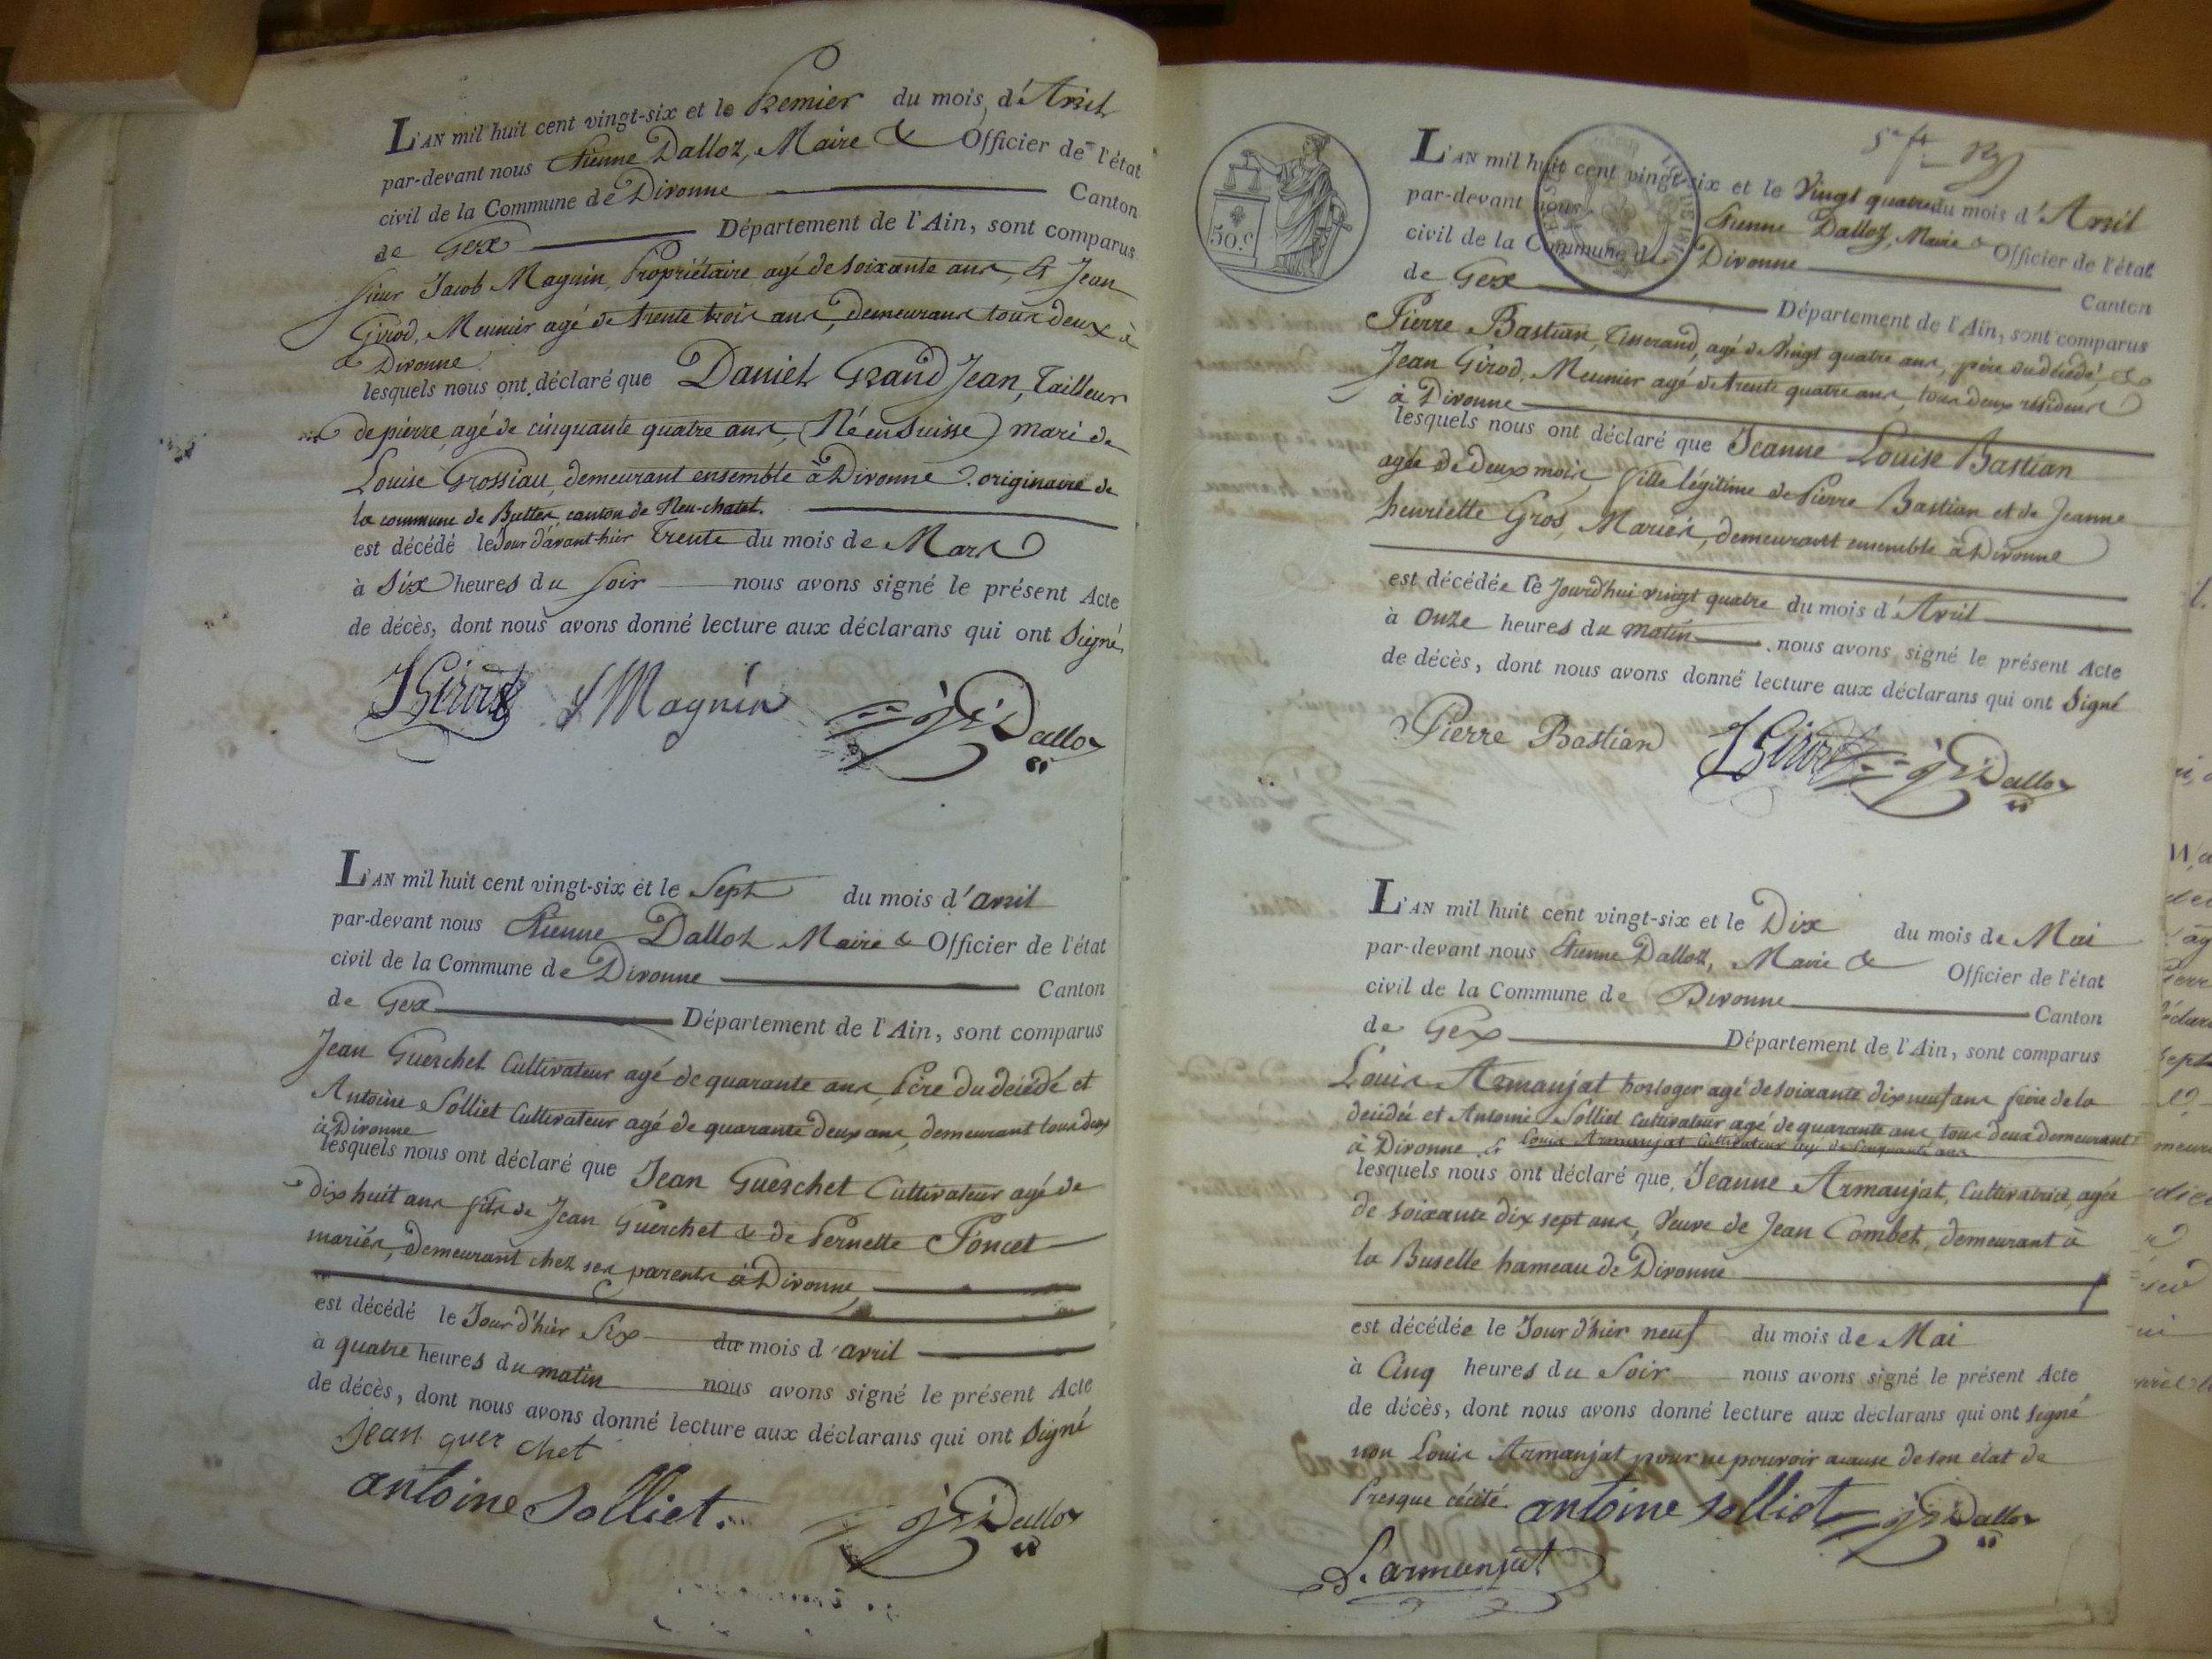 L'AN mil huit cent vingt-six et le Premier du mois d'Avril
par-devant nous Etienne Dalloz, Maire & Officier de l'état
civil de la Commune de Divonne Canton
de Gex Département de l'Ain, sont comparus
sieur Jacob Magnin, Propriétaire agé de soixante ans, & Jean
Girod, Meunier agé de trente trois ans, demeurans tous deux à
Divonne
lesquels nous ont déclaré que Daniel GrandJean, Tailleur
de pierre, agé de cinquante quatre ans, (Né en Suisse) mari de
Louise Grossiau, demeurant ensemble à Divonne. originaire de
la commune de Buttes, canton de Neu-chatel.
est décédé le Jour d'avant-hier Trente du mois de Mars
à Six heures du Soir nous avons signé le présent Acte
de décès, dont nous avons donné lecture aux déclarans qui ont Signé
JGirod J Magnin Dalloz
L'AN mil huit cent vingt-six et le Sept du mois d'avril
par-devant nous Etienne Dalloz Maire & Officier de l'état
civil de la Commune de Divonne Canton
de Gex Département de l'Ain, sont comparus
Jean Guerchet Cultivateur agé de quarante ans, Père du décédé et
Antoine Solliet Cultivateur agé de quarante deux ans, demeurant tous deux
à Divonne
lesquels nous ont déclaré que Jean Guerchet Cultivateur agé de
dix huit ans fils de Jean Guerchet & de Pernette Poncet
mariés, demeurant chez ses parents à Divonne
est décédé le Jour d'hier Six du mois d'avril
à quatre heures du matin nous avons signé le présent Acte
de décès, dont nous avons donné lecture aux déclarans qui ont Signé
jean guer chet
antoine Solliet. Dalloz
50 c
L'AN mil huit cent vingt-six et le Vingt quatre du mois d'Avril
par-devant nous Etienne Dalloz, Maire & Officier de l'état
civil de la Commune de Divonne Canton
de Gex Département de l'Ain, sont comparus
Pierre Bastian, Tisserand, agé de Vingt quatre ans, père du décédé, &
Jean Girod, Meunier agé de trente quatre ans, tous deux résidens
à Divonne
lesquels nous ont déclaré que Jeanne Louise Bastian
agée de deux mois, fille légitime de Pierre Bastian et de Jeanne
henriette Gros, Mariés, demeurant ensemble à Divonne
est décédée le Jourd'hui vingt quatre du mois d'Avril
à Onze heures du matin nous avons signé le présent Acte
de décès, dont nous avons donné lecture aux déclarans qui ont Signé
Pierre Bastian JGirod Dalloz
L'AN mil huit cent vingt-six et le Dix du mois de Mai
par-devant nous Etienne Dalloz, Maire & Officier de l'état
civil de la Commune de Divonne Canton
de Gex Département de l'Ain, sont comparus
Louis Armanjat horloger agé de soixante dix neuf ans frère de la
décédée et Antoine Solliet Cultivateur agé de quarante ans tous deux demeurant
à Divonne & Louis Armanjat Cultivateur agé de Cinquante ans
lesquels nous ont déclaré que Jeanne Armanjat, Cultivatrice, agée
de soixante dix sept ans, Veuve de Jean Combet, demeurant à
la Buselle hameau de Divonne
est décédée le Jour d'hier neuf du mois de Mai
à Cinq heures du Soir nous avons signé le présent Acte
de décès, dont nous avons donné lecture aux déclarans qui ont signé
non Louis Armanjat pour ne pouvoir acause de son état de
Presque cécité antoine Solliet Dalloz
L. armanjat